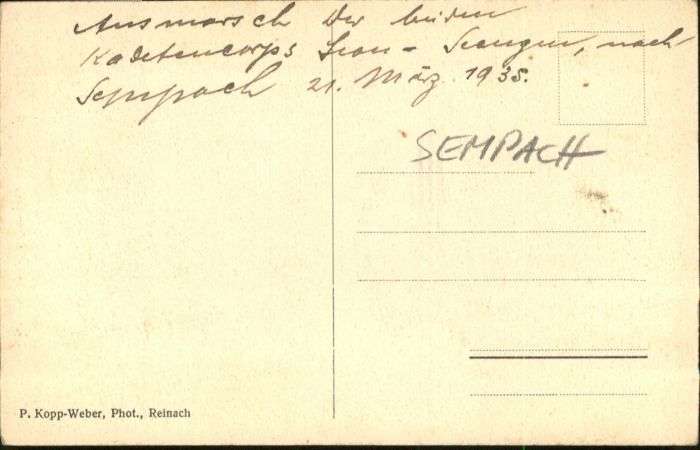 Ausmarsch der beiden
Kadetencorps Seon - Seengen, nach
Sempach 21. März 1935.
SEMPACH
P. Kopp-Weber, Phot., Reinach